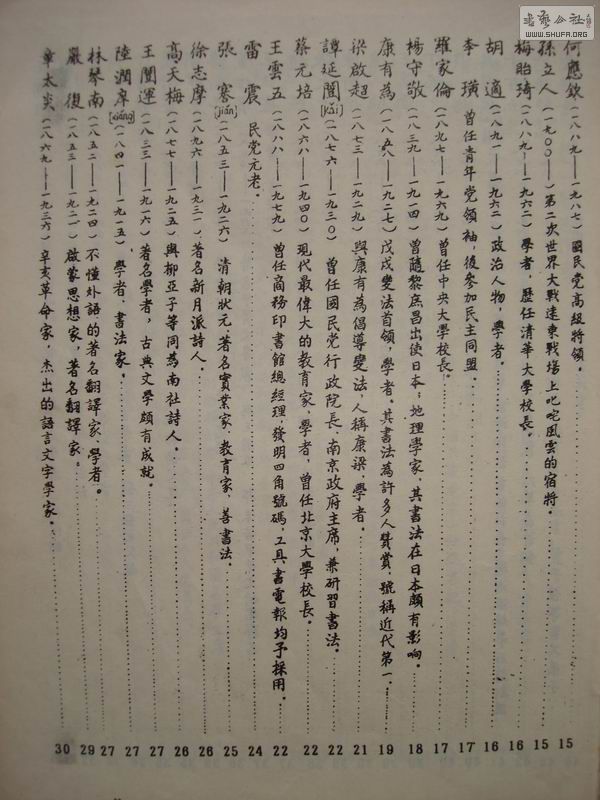 書藝公社
www.SHUFA.ORG
何應欽(一八八九——一九八七)國民党高級將領。15
孫立人(一九〇〇——)第二次世界大戰遠東戰場上叱咤風雲的宿將。15
梅貽琦(一八八九——一九六二)學者,歷任清華大學校長。16
胡適(一八九一——一九六二)政治人物,學者。16
李璜 曾任青年党領袖,後參加民主同盟。17
羅家倫(一八九七——一九六九)曾任中央大學校長。17
楊守敬(一八三九——一九一四)曾隨黎庶昌出使日本;地理學家,其書法在日本頗有影响。18
康有為(一八五八——一九二七)戊戌變法首領,學者。其書法為許多人贊賞,號稱近代第一。19
梁啟超(一八七三——一九二九)與康有為倡導變法,人稱康梁,學者。21
譚延闓[kǎi](一八七六——一九三〇)曾任國民党行政院長、南京政府主席,兼研習書法。22
蔡元培(一八六八——一九四〇)現代最偉大的教育家、學者,曾任北京大學校長。22
王雲五(一八八八——一九七九)曾任商務印書館總經理,發明四角號碼,工具書電報均予採用。22
雷震 民党元老。24
張謇[jiǎn](一八五三——一九二六)清朝狀元,著名實業家、教育家,善書法。25
徐志摩(一八九六——一九三一)著名新月派詩人。26
高天梅(一八七七——一九二五)與柳亞子等同為南社詩人。26
王闓運(一八三三——一九一六)著名學者,古典文學頗有成就。27
陸潤庠[xiáng](一八四一——一九一五)學者,書法家。27
林琴南(一八五二——一九二四)不懂外語的著名翻譯家、學者。27
嚴復(一八五三——一九二一)啟蒙思想家,著名翻譯家。29
章太炎(一八六九——一九三六)辛亥革命家,杰出的語言文字學家。30